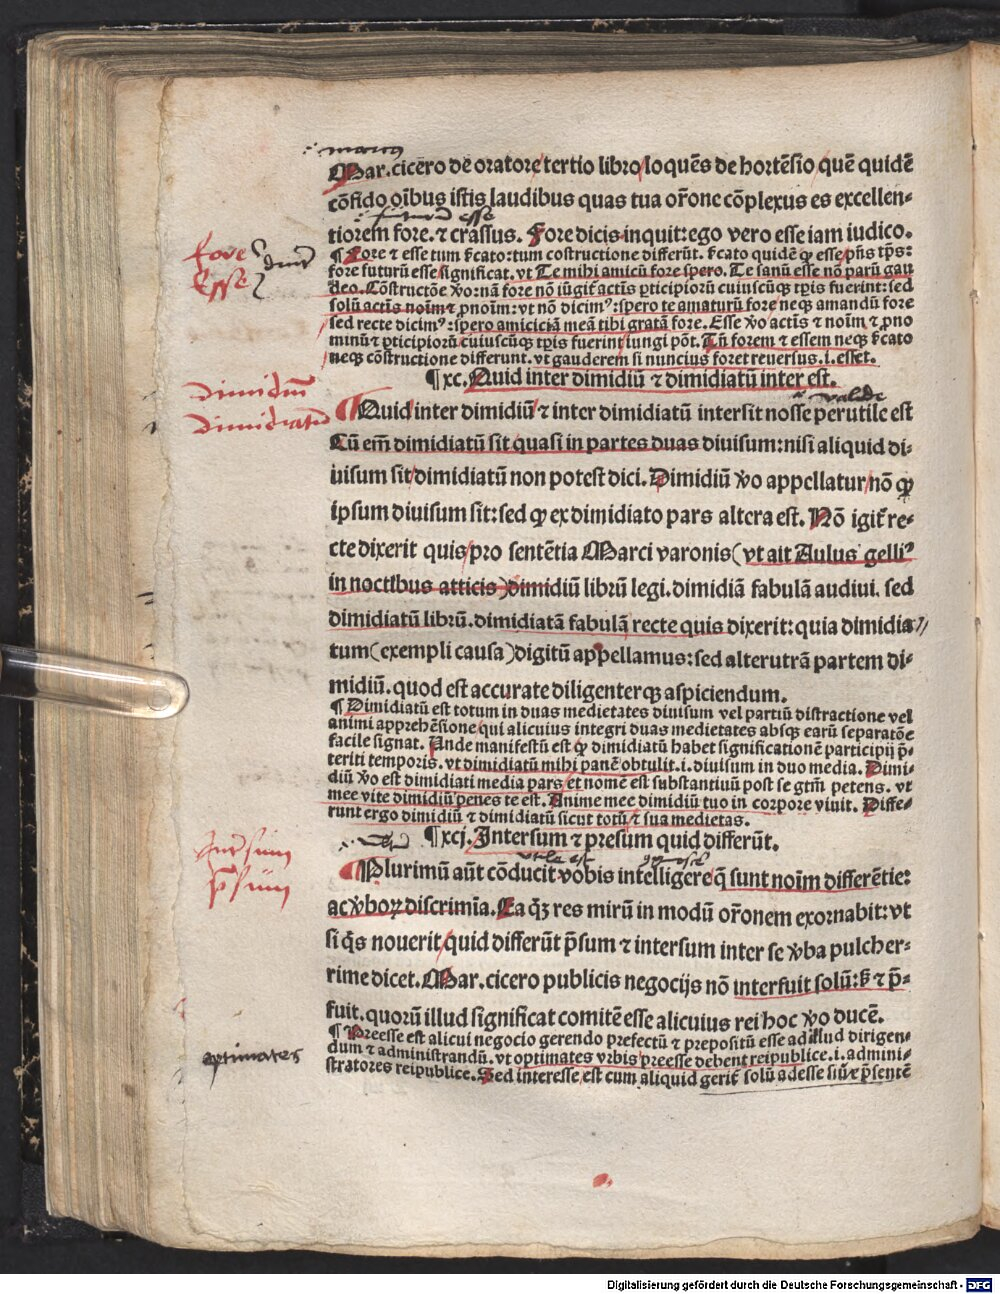 marcus
Mar.cicero de oratore/tertio libro/loquēs de hortēsio/quē quidē
cōfido oībus istis laudibus quas tua or̄one cōplexus es excellen-
.i. futurum esse
tiorem fore.⁊ crassus. Fore dicis inquit:ego vero esse iam iudico.
fore
Esse
¶ Fore ⁊ esse tum ſ̄cato:tum cōstructione differūt. ſ̄cato quidē ꝙ esse/pn̄s tp̄s:
fore futurū esse significat. vt Te mihi amicū fore spero. Te sanū esse nō parū gau
deo. Cōstructōe ꝟo:nā fore nō iūgit̄ actīs ꝑticipiorū cuiuscūqꝫ tp̄is fuerint:sed
solū actīs noīm ⁊ ꝓnoīm:vt nō dicimꝰ:spero te amaturū fore neqꝫ amandū fore
sed recte dicimꝰ:spero amiciciā meā tibi gratā fore. Esse ꝟo actīs ⁊ noīm ⁊ ꝓno
minū ⁊ ꝑticipiorū/cuiuscūqꝫ tp̄is fuerint iungi pōt. Tn̄ forem ⁊ essem neqꝫ ſ̄cato
neqꝫ cōstructione differunt. vt gauderem si nuncius foret reuersus.i.esset.
¶xc. Quid inter dimidiū ⁊ dimidiatū inter est.
Dimidiū
Dimidiatū
valde
¶Quid inter dimidiū ⁊ inter dimidiatū intersit nosse perutile est
Cū em̄ dimidiatū sit quasi in partes duas diuisum:nisi aliquid di-
uisum sit/dimidiatū non potest dici. Dimidiū ꝟo appellatur/nō ꝙ
ipsum diuisum sit:sed ꝙ ex dimidiato pars altera est. Nō igit̄ re-
cte dixerit quis/pro sentētia Marci varonis(vt ait Aulus gelliꝰ
in noctibus atticis)dimidiū librū legi.dimidiā fabulā audiui. sed
dimidiatū librū.dimidiatā fabulā recte quis dixerit:quia dimidia
tum(exempli causa)digitū appellamus:sed alterutrā partem di-
midiū.quod est accurate diligenterqꝫ aspiciendum.
¶ Dimidiatū est totum in duas medietates diuisum vel partiū distractione vel
animi apprehēsione/qui alicuius integri duas medietates absqꝫ earū separatōe
facile signat. Ande manifestū est ꝙ dimidiatū habet significationē participij p̄-
teriti temporis. vt dimidiatū mihi panē obtulit.i.diuisum in duo media. Dimi-
diū ꝟo est dimidiati media pars/et nomē est substantiuū post se gtm̄ petens. vt
mee vite dimidiū penes te est. Anime mee dimidiū tuo in corpore viuit. Diffe-
runt ergo dimidiū ⁊ dimidiatū sicut totū ⁊ sua medietas.
¶xcj. Intersum ⁊ presum quid differūt.
Intersum
p̄sum
utile est
¶Plurimū aūt cōducit vobis intelligere/q̄ sunt noīm differētie:
ac ꝟboꝝ discrimīa. Ea q̄ꝫ res mirū in modū or̄onem exornabit:vt
si q̄s nouerit/quid differūt p̄sum ⁊ intersum inter se ꝟba pulcher-
rime dicet. Mar.cicero publicis negocijs nō interfuit solū:ſꝫ ⁊ p̄-
fuit.quorū illud significat comitē esse alicuius rei hoc ꝟo ducē.
optimates
¶ Preesse est alicui negocio gerendo prefectū ⁊ prepositū esse ad illud dirigen-
dum ⁊ administrandū. vt optimates vrbis/preesse debent reipublice.i.admini-
stratores reipublice. Sed interesse/est cum aliquid gerit̄ solū adesse siue p̄sentē
Digitalisierung gefördert durch die Deutsche Forschungsgemeinschaft - DFG